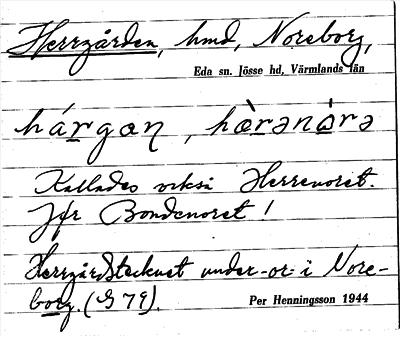 Herrgården, hmd, Noreborg,
Eda sn. Jösse hd, Värmlands län
hárgan, hàrənárə
Kallades också Herrenoret.
Jfr Bondenoret!
Herrgårdstecknet under -or- i Nore-
borg. (G 79).
Per Henningsson 1944